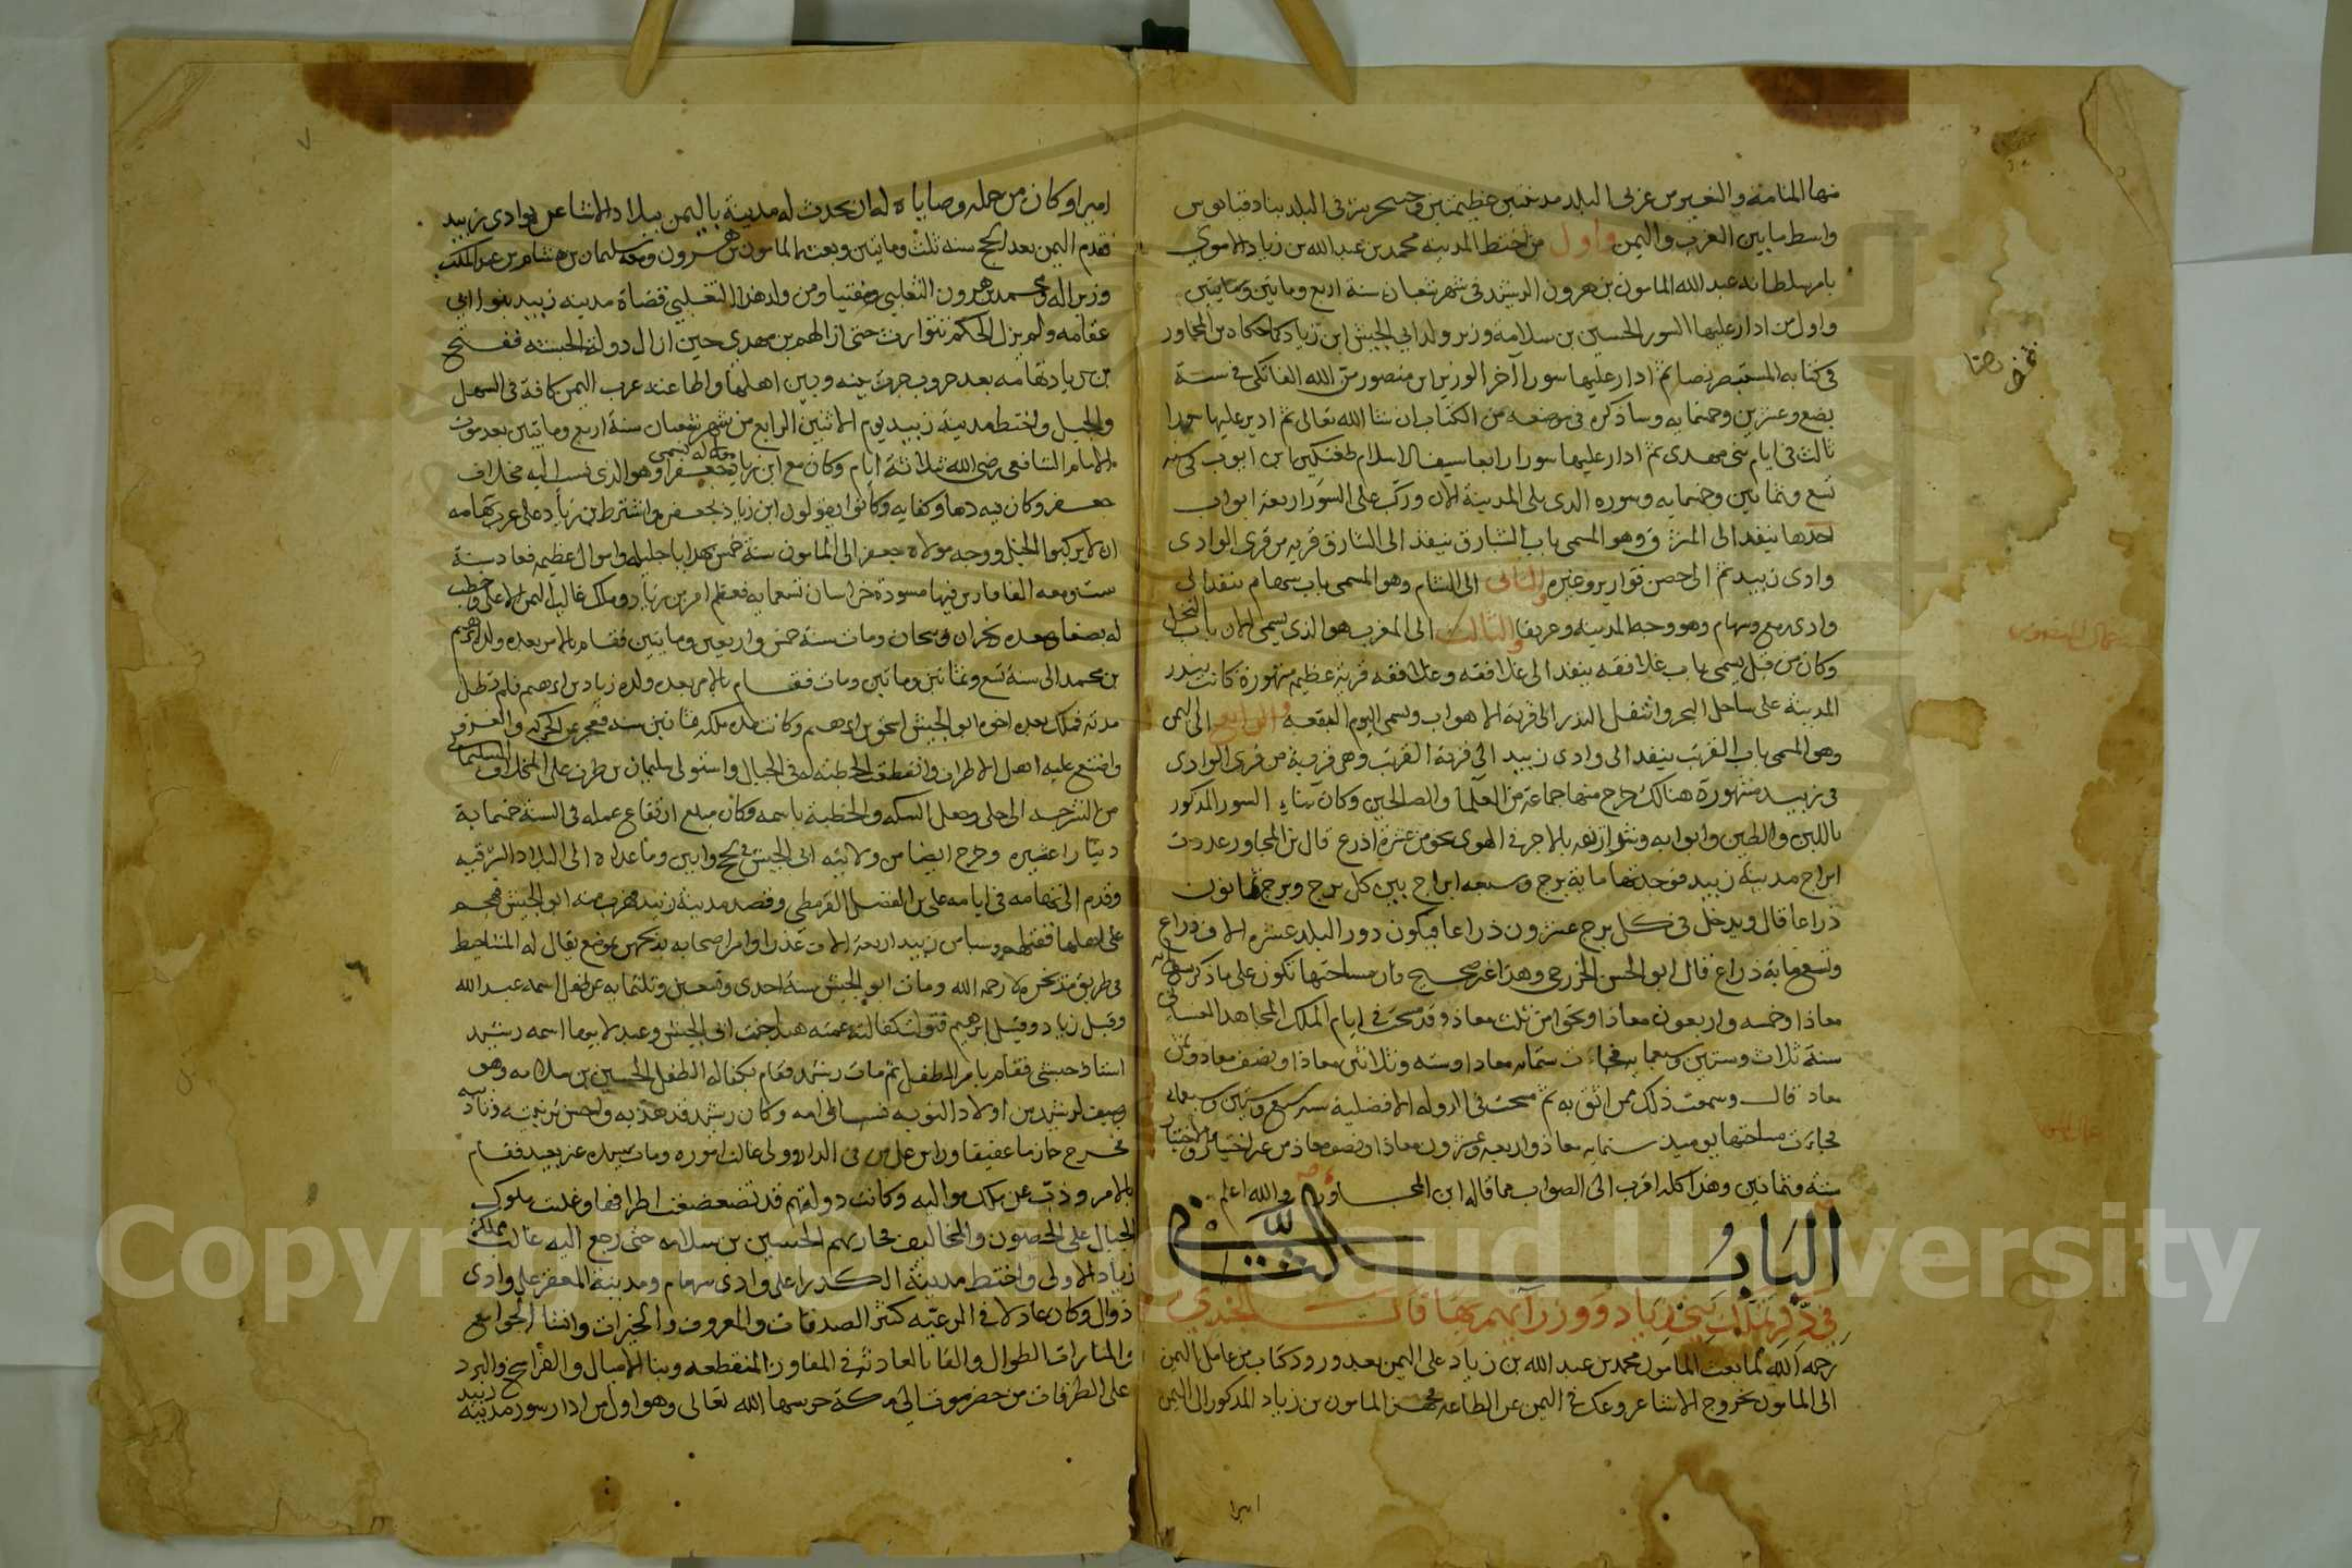 واسط ما بين العرب واليمن واول من اختط المدينه محمد بن عبدالله بن زياد الاموي
بامر سلطانه عبد الله المامون بن هرون الرشيد في شهر شعبان سنة اربع وماتين
واول من ادار عليها السور الحسين بن سلامه وزير ولد ابي الجيش ابن زياد كما حكاه بن المجاور
في كتابه المستبصر نصا ثم ادار عليها سورا آخر الوزير ابن منصور من الله الفاتكي في سنة
بضع وعشرين وخمسمايه وساذكره في موضعه من الكتاب ان شا الله تعالى ثم ادير عليها سورا
ثالث في ايام بني مهدي ثم ادار عليها سورا رابعا سيف الاسلام طغتكين ابن ايوب في سنه
تسع وثمانين وخمسمايه وسوره الذي على المدينة الان وركب على السور اربعة ابواب
احدها ينفذ الى المشرق وهو المسمى باب الشبارق ينفذ الى الشبارق قريه من قرى الوادي
وادي زبيد ثم الى حصن قوارير وغيره والثاني الى الشام وهو المسمى باب سهام ينفذ الى
وادي رمع وسهام والثالث الى المغرب هو الذي يسمى الان باب النخل
وكان من قبل يسمى باب غلافقه ينفذ الى غلافقه وغلافقه قرية عظيمه مشهورة كانت بندر
المدينة على ساحل البحر وانتقل البندر الى قرية الاهواب ويسمى اليوم البقعه والرابع الى اليمن
وهو المسمى باب القرتب ينفذ الى وادي زبيد الى قرية القرتب وهي قرية من قرى الوادي
في زبيد مشهورة هنالك خرج منها جماعة من العلما والصالحين وكان بناء السور المذكور
باللبن والطين وابوابه وشراريفه بالاجر في الهوى نحو من عشرة اذرع قال بن المجاور عددت
ابراج مدينة زبيد فوجدتها ماية برج وسبعه ابراج بين كل برج وبرج ثمانون
ذراعا قال ويدخل في كل برج عشرون ذراعا فيكون دور البلد عشره الاف ذراع
وتسعماية ذراع قال ابو الحسن الخزرجي وهذا غير صحيح فان مساحتها تكون على ما ذكر
معاذا وخمسه واربعون معاذا ونحوا من ثلث معاذ وقد مسحت في ايام الملك المجاهد الغساني
سنة ثلاث وستين وسبعمايه فجات ستمايه معادا وسته وثلاثين معاذا ونصف معاذ وثمن
معاذ قال وسمعت ذلك ممن اثق به ثم مسحت في الدوله الافضلية سنه سبع وستين وسبعمايه
فجاءت مساحتها يوميذ ستمايه معاذ واربعه وعشرون معاذا ونصف معاذ
سنة وثمانين وهذا كله اقرب الى الصواب مما قاله ابن المجاور والله اعلم
الباب الثاني
في ذكر تملك بني زياد ووزرآئهم بها قال الجندي
رحمه الله لما بعث المامون محمد بن عبد الله بن زياد على اليمن بعد ورود كتاب من عامل اليمن
الى المامون بخروج الاشاعر وعك في اليمن عن الطاعه فجهز المامون بن زياد المذكور الى اليمن
اميرا
اميرا وكان من جمله وصاياه له ان يحدث له مدينة باليمن ببلاد الاشاعر بوادي زبيد
فقدم اليمن بعد الحج سنه ثلث وماتين وبعث المامون بن هرون معه سليمان بن هشام بن عبد الملك
وزيرا له ومحمد بن هرون التغلبي ومفتيا ومن ولد هذا التغلبي قضاة مدينه زبيد بنوا ابي
عقامه ولم يزل الحكم متوارث حتى ازالهم بن مهدي حين ازال دولة الحبشه ففتح
بن زياد تهامه بعد حروب جرت بينه وبين اهلها واطاعته عرب اليمن كافة في السهل
والجبل واختط مدينة زبيد يوم الاثنين الرابع من شهر شعبان سنة اربع وماتين بعد موت
الامام الشافعي رضي الله بثلاثة ايام وكان مع ابن زياد مولى له يسمى جعفرا وهو الذي نسب اليه مخلاف
جعفر وكان فيه دها وكفايه وكانوا يقولون ابن زياد بجعفر واشترط بن زياد على عرب تهامه
ان لا يركبوا الخيل ووجه مولاه جعفر الى المامون سنة خمس بهدايا جليله واموال عظيمه فعاد سنة
ست ومعه الفا فارس فيها مسودة خراسان تسعمايه فعظم امر بن زياد وملك غالب اليمن الاعلى وخطب
له بصنعا وصعده ونجران وبيحان ومات سنة خمس واربعين وماتين فقام بالامر بعده ولده ابرهيم
بن محمد الى سنة تسع وثمانين وماتين ومات فقام بالامر بعده ولده زياد بن ابرهيم فلم تطل
مدته فملك بعده اخوه ابو الجيش اسحق بن ابرهيم وكانت مدة ملكه ثمانين سنه فعجز عن الحركه والغزو
وامتنع عليه اهل الاطراف وانقطعت الخطبة له في الجبال واستولى سليمان بن طرف على المخلاف السليماني
من الشرجه الى حلى وجعل السكه والخطبة باسمه وكان مبلغ ارتفاع عمله في السنة خمسماية
دينارا عثريه وخرج ايضا من ولايته ابي الجيش لحج وابين وما عداه الى البلاد الشرقيه
وقدم الى تهامه في ايامه علي بن الفضل القرمطي وقصد مدينة زبيد فهرب منه ابو الجيش فهجم
على اهلها وسبا من زبيد اربعة الاف عذرا وامر اصحابه بذبحهن بموضع يقال له المشاحيط
ومات ابو الجيش سنة احدى وتسعين وثلثمايه عن طفل اسمه عبد الله
وقيل زياد وقيل ابرهيم فتولت كفالته عمته هند بنت ابي الجيش وعبد لابيها اسمه رشيد
استاذ حبشي فقام بامر الطفل ثم مات رشيد فقام بكفاله الطفل الحسين بن سلامه وهو
وصيف لرشيد من اولاد النوبه نسب الى امه وكان رشيد قد هذبه واحسن تربيته
فخرج حازما عفيفا ومات سيده عن بعيد فقام
بالامر وذب عن ملك مواليه وكانت دولتهم قد تضعضعت اطرافها وغلبت ملوك
الجبال على الحصون والمخاليف فحاربهم الحسين بن سلامه حتى رجع اليه غالب مملكة
زياد الاولى واختط مدينة الكدرا على وادي سهام ومدينة المعقر على وادي
ذوال وكان عادلا في الرعيه كثير الصدقات والمعروف والخيرات وانشا الجوامع
والمنارات الطوال والقلب العاديه في المفاوز المنقطعه وبنا الاميال والفراسخ والبرد
على الطرقات من حضرموت الى مكة حرسها الله تعالى وهو اول من ادار سور مدينة زبيد
Copyright © King Saud University